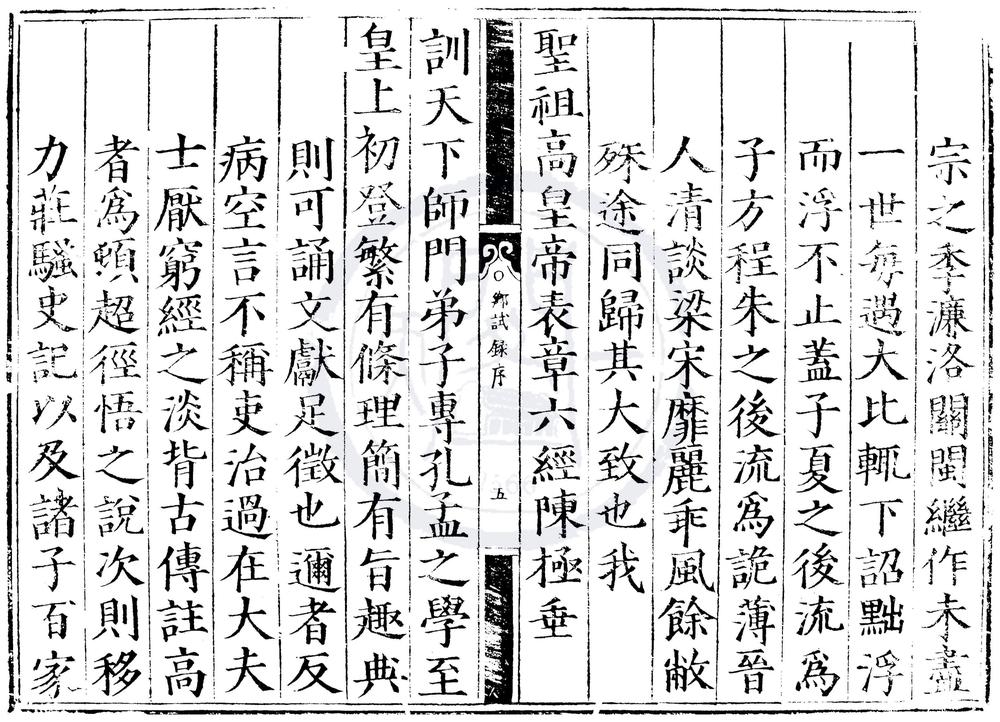 宗之季濂洛關閩繼作未盡
一世每遇大比輒下詔黜浮
而浮不止蓋子夏之後流爲
子方程朱之後流爲詭薄晉
人清談梁宋靡麗乖風餘敝
殊途同歸其大致也我
聖祖高皇帝表章六經陳極垂
鄉試錄序
五
訓天下師門弟子專孔孟之學至
皇上初登繁有條理簡有旨趣典
則可誦文獻足徵也邇者反
病空言不稱吏治過在大夫
士厭窮經之淡背古傳註高
者爲頓超徑悟之說次則移
力莊騷史記以及諸子百家